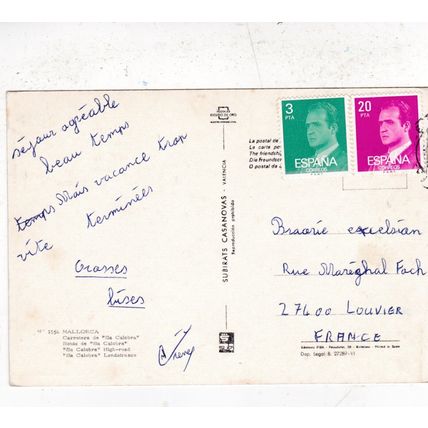 séjour agréable
beau temps
temps Mais vacance trop
vite terminées
Grosses
bises
1154 MALLORCA
Carretera de "Sa Calobra"
Route de "Sa Calobra"
"Sa Calobra" High-road
"Sa Calobra" Landstrasse
SUBIRATS CASANOVAS - VALENCIA
Reproducción prohibida
La postal de
La carte po
The friendsh
Die freundsch
O postal da
3
PTA
ESPAÑA
CORREOS
20
PTA
ESPAÑA
CORREOS
Braerie excelsian
Rue Maréghal Foch
27400 LOUVIER
FRANCE
Dep. Legal B. 27287-VI